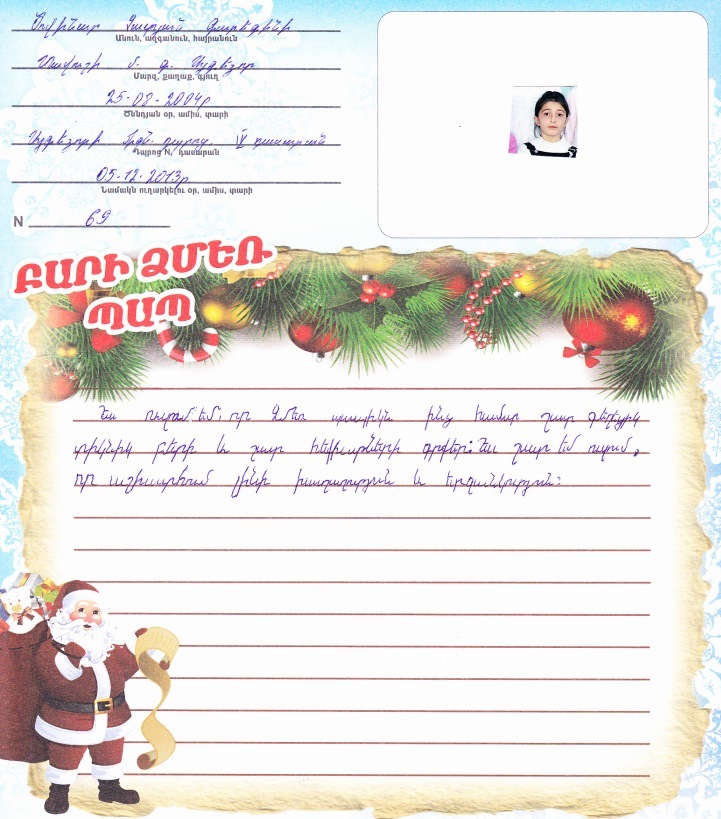 Հովինար Չատյան Գարեգինի
Անուն, ազգանուն, հայրանուն
Տավուշի մ. գ. Այգեձոր
Մարզ, քաղաք, գյուղ
25-08-2004թ
Ծննդյան օր, ամիս, տարի
Այգեձորի միջն. դպրոց, IV դասարան
Դպրոց N, դասարան
05-12-2013թ
Նամակն ուղարկելու օր, ամիս, տարի
N 69
ԲԱՐԻ ՁՄԵՌ
ՊԱՊ
Ես ուզում եմ, որ Ձմեռ պապիկն ինձ համար շատ գեղեցիկ
տիկնիկ բերի և շատ հեքիաթների գրքեր: Ես շատ եմ ուզում,
որ աշխարհում լինի խաղաղություն և երջանկություն: